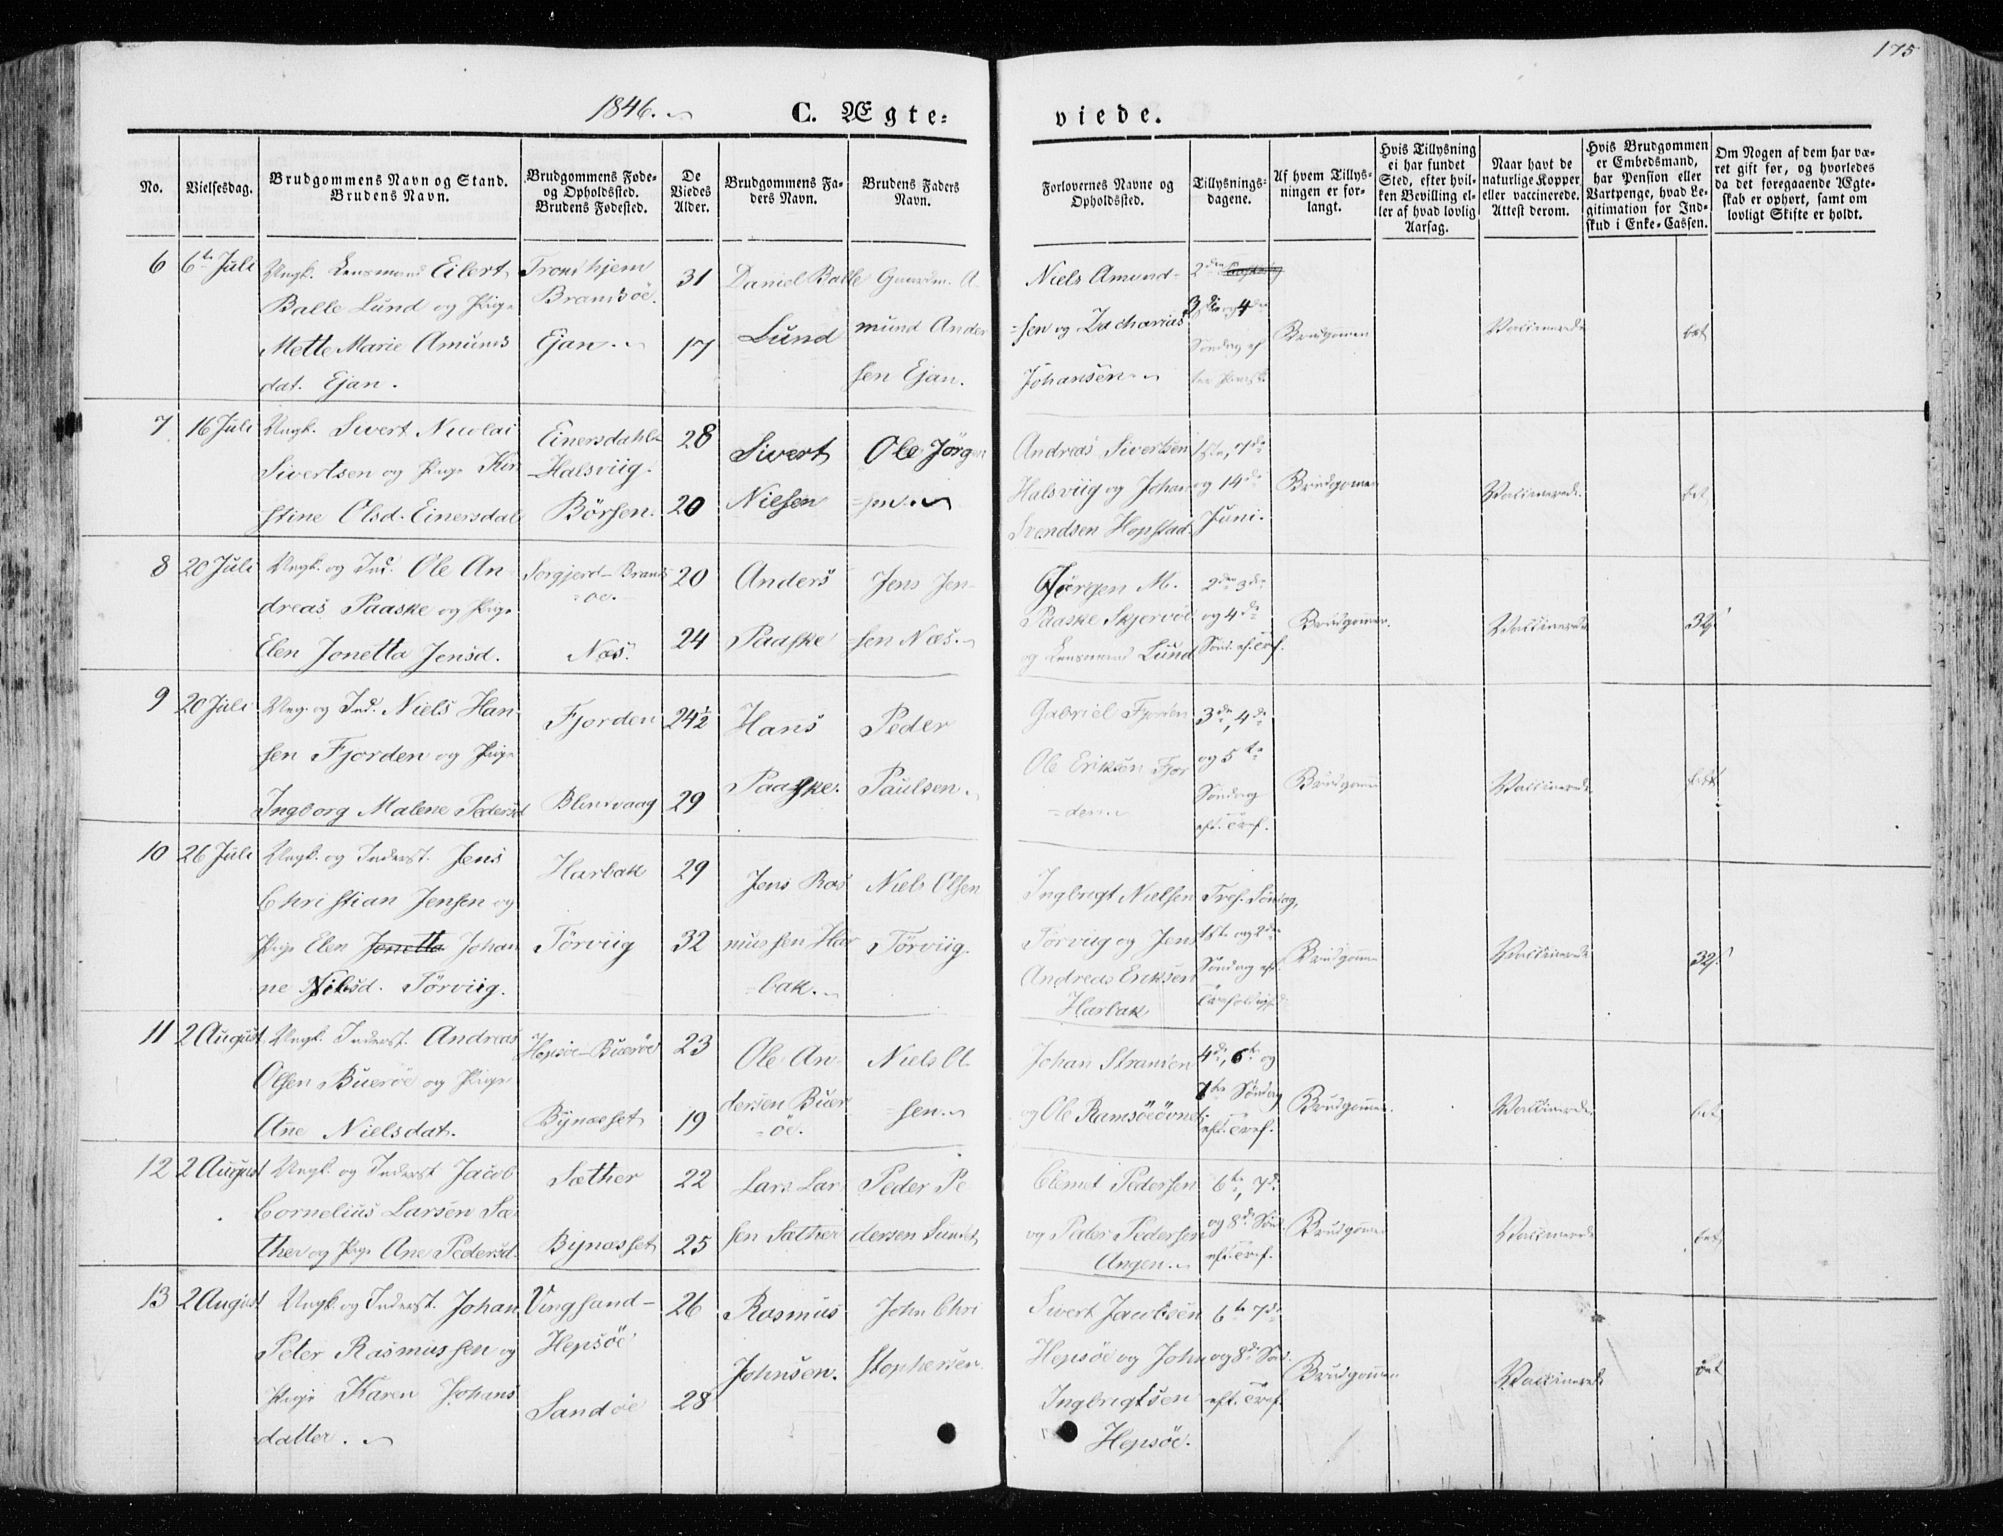 175
1846.
C. Ægte= viede.
No.
Vielsesdag.
Brudgommens Navn og Stand.
Brudens Navn.
Brudgommens Føde-
og Opholdssted.
Brudens Fødested.
De
Viedes
Alder.
Brudgommens Fa-
ders Navn.
Brudens Faders
Navn.
Forlovernes Navne og
Opholdssted.
Tillysnings-
dagene.
Af hvem Tillys-
ningen er for-
langt.
Hvis Tillysning
ei har fundet
Sted, efter hvil-
ken Bevilling el-
ler af hvad lovlig
Aarsag.
Naar havt de
naturlige Kopper
eller vaccinerede.
Attest derom.
Hvis Brudgommen
er Embedsmand,
har Pension eller
Vartpenge, hvad Le-
gitimation for Ind-
skud i Enke-Cassen.
Om Nogen af dem har væ-
ret gift før, og hvorledes
da det foregaaende Ægte-
skab er ophørt, samt om
lovligt Skifte er holdt.
6
6te Juli
Ungk. Lensmand Eilert
Balle Lund og Pige
Mette Marie Amunds
dat. Ejan.
Tronhjem
Bransøe.
Ejan.
31
17
Daniel Balle
Lund
Gaardm. A-
mund Ander
sen Ejan.
Niels Amund-
=sen og Zacharias
Johansen
2den
3die og 4de
Søndag ef
ter Paask.
Brudgomen
Vaccinerede
bet
7
16 Juli
Ungk. Sivert Nicolai
Sivertsen og Pige Kir
stine Olsd. Einersdal
Einersdahl-
Halsviig.
Børsen.
28
20
Sivert
Nielsen
Ole Jørgen
=sen.
Andreas Sivertsen
Halsviig og Johan
Svendsen Hopstad
1ste, 7de
og 14de
Juni.
Brudgomen
Vaccinerede.
bet
8
20 Juli
Ungk. og Ind. Ole An-
dreas Paaske og Pige
Elen Jonetta Jensd.
Sorgjerd-Brands
=øe.
Næs.
20
24
Anders
Paaske
Jens Jen-
sen Næs.
Jørgen M.
Paaske Skjervøe
og Lensmand Lund
2den 3de
og 4de
Sønd. ef. Tref.
Brudgommen.
Vaccinerede
32
9
20 Juli
Ung. og Ind. Niels Han-
sen Fjorden og Pige
Ingborg Malene Pedersd
Fjorden
Blinvaag
24½
29
Hans
Paaske.
Peder
Paulsen.
Gabriel Fjorden
Ole Eriksen Fjor
=den.
3de, 4de
og 5te
Søndag
eft. Tref.
Brudgomm
Vaccinerede
bet
10
26 Juli
Ungk. og Inderst. Jens
Christian Jensen og
Pige Elen Jonetta Johan
ne Nilsd. Tørviig.
Harbak
Tørviig
29
32
Jens Ras
mussen Har
=bak.
Niels Olsen
Tørviig.
Ingbregt Nielsen
Tørviig og Jens
Andreas Eriksen
Harbak
Tref. Søndag,
1ste og 2den
Søndag eft.
Brudgomme
Vaccinerede
32
11
2 August
Ungk. Inderst. Andreas
Olsen Buerøe og Pige
Ane Nielsdat.
Hepsøe-Buerøe
Bynæsset
23
19
Ole An-
dersen Buer
=øe.
Niels Ol
=sen.
Johan Stransen
og Ole Ramsøeøvnet
4de, 6te og
7te Søndag
eft. Tref.
Brudgomme.
Vaccinerede
bet
12
2 August
Ungk. og Inderst Jacob
Cornelius Larsen Sæ-
ther og Pige Ane Pedersd.
Sæther
Bynæsset
22
25
Lars Lar
sen Sæther
Peder Pe
dersen Sundet
Clemet Pedersen
og Peder Pedersen
Angen.
6te, 7de
og 8de Sønd.
eft. Tref.
Brudgomme
Vaccinerede
bet
13
2 August
Ungk. og Inderst. Johan
Peter Rasmussen og
Pige Karen Johans
datter.
Vingsand-
Hepsøe
Sandøe
26
28
Rasmus
Johnsen.
John Chri
stophersen.
Sivert Jacobsen
Hepsøe og John
Ingbrigtsen
Hepsøe.
6te 7de
og 8de Sønd.
eft. Tref.
Brudgommen
Vaccinerede
bet